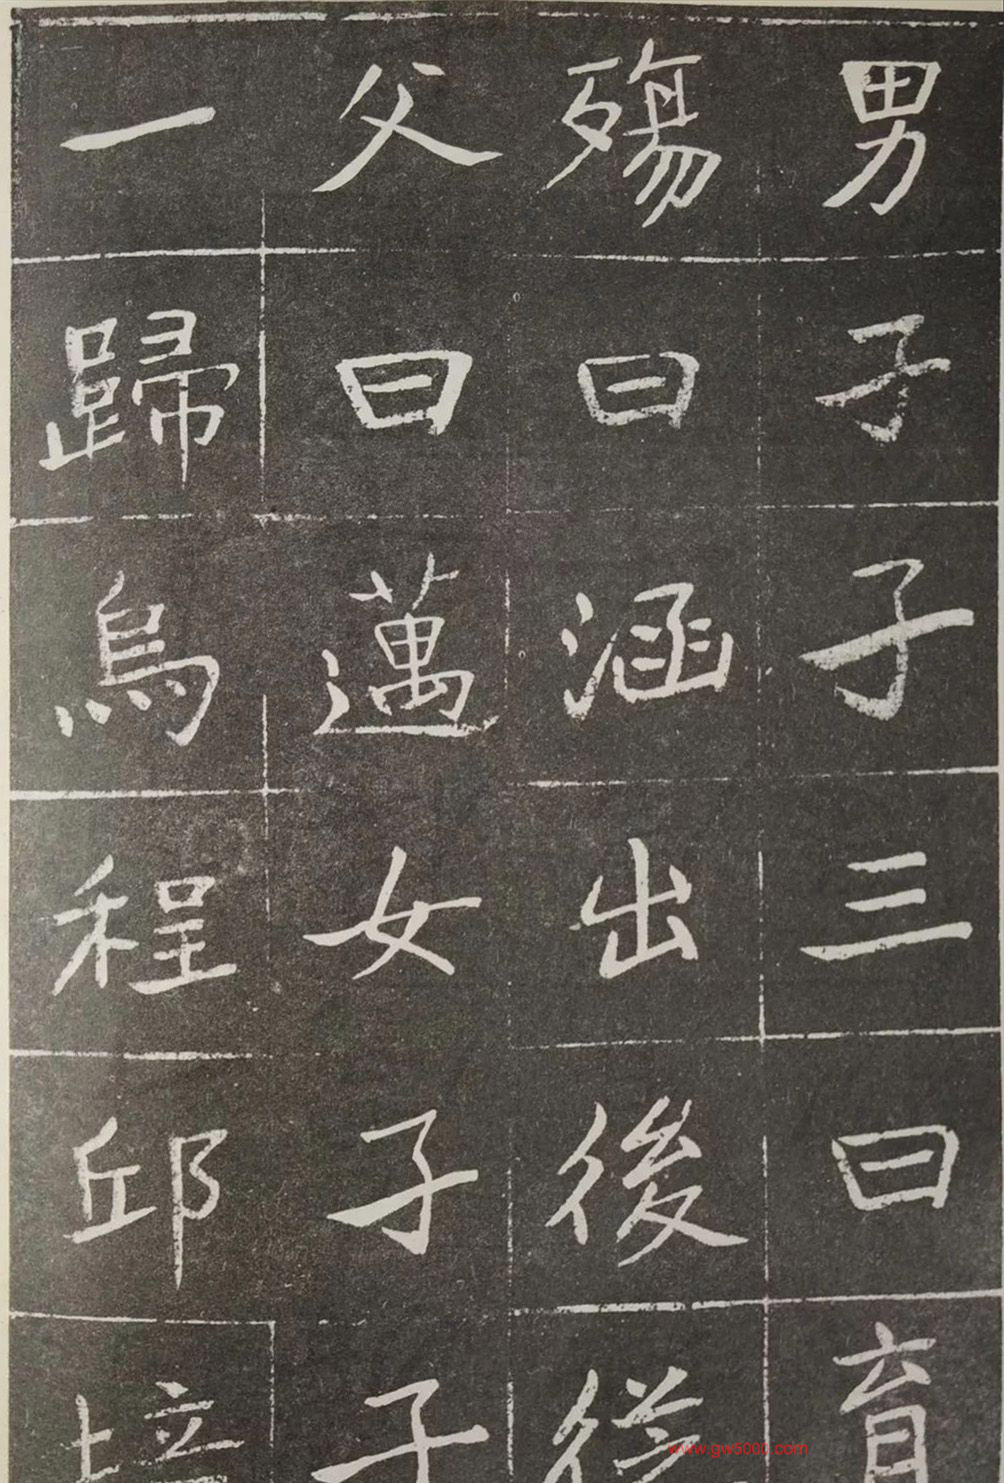 男子子三曰育
殤曰涵出後從
父曰邁女子子
一歸烏程邱培
www.gw5000.com